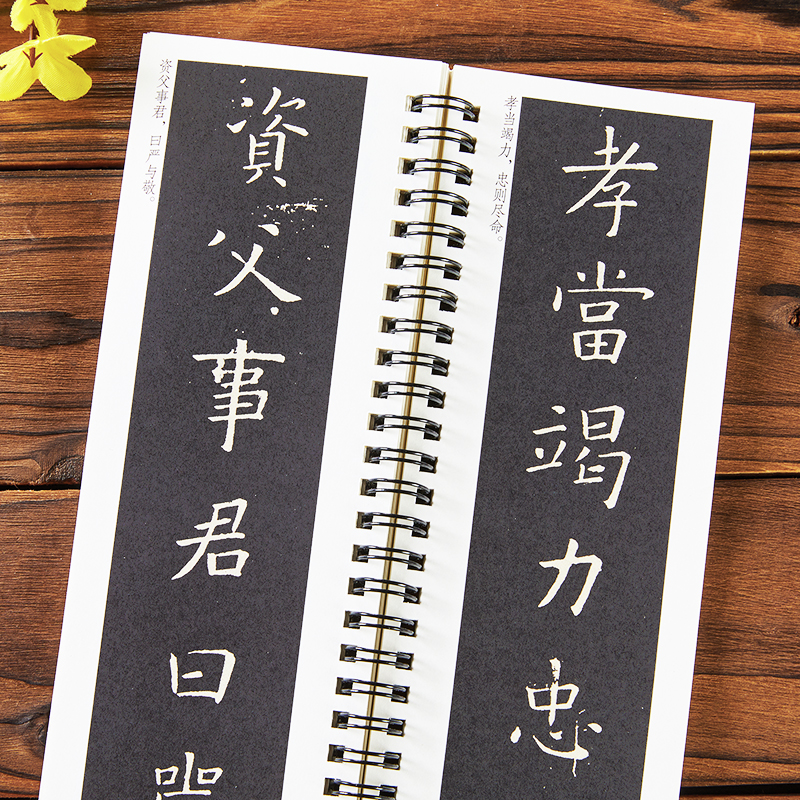 资父事君，曰严与敬。
資父事君曰
孝当竭力，忠则尽命。
孝當竭力忠